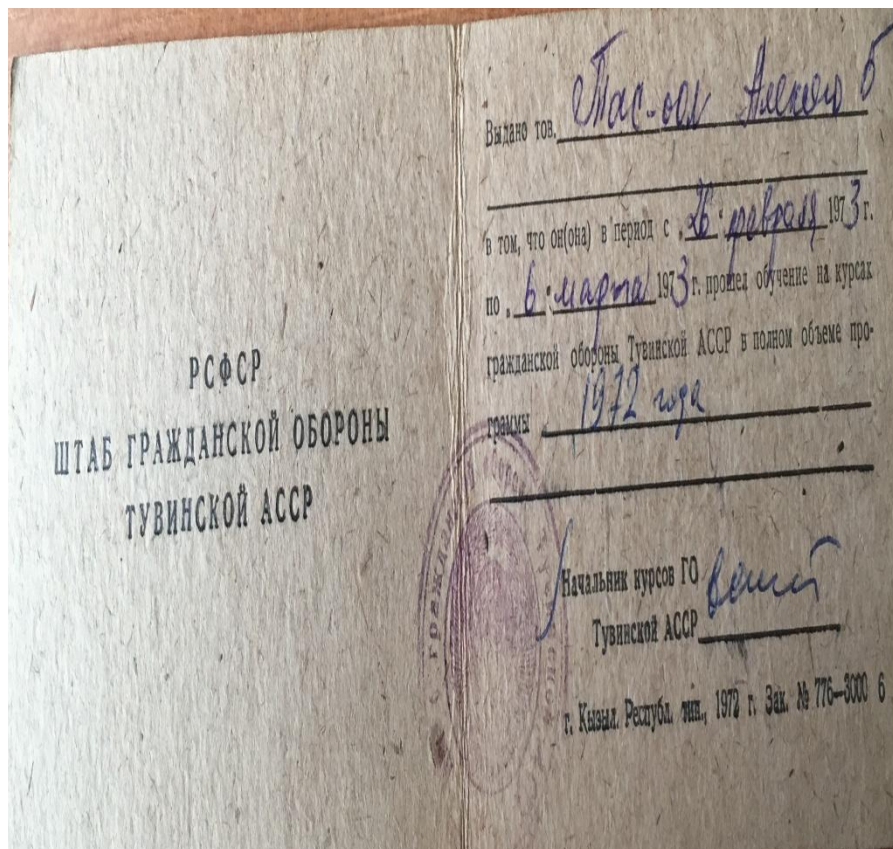 РСФСР
ШТАБ ГРАЖДАНСКОЙ ОБОРОНЫ
ТУВИНСКОЙ АССР
Выдано тов. Тас-оол
в том, что он(она) в период с „26“ февраля 1973 г.
по „6“ марта 1973 г. прошел обучение на курсах
гражданской обороны Тувинской АССР в полном объеме про-
граммы 1972 года
Начальник курсов ГО
Тувинской АССР
г. Кызыл. Республ. тип., 1972 г. Зак. № 776—3000 б